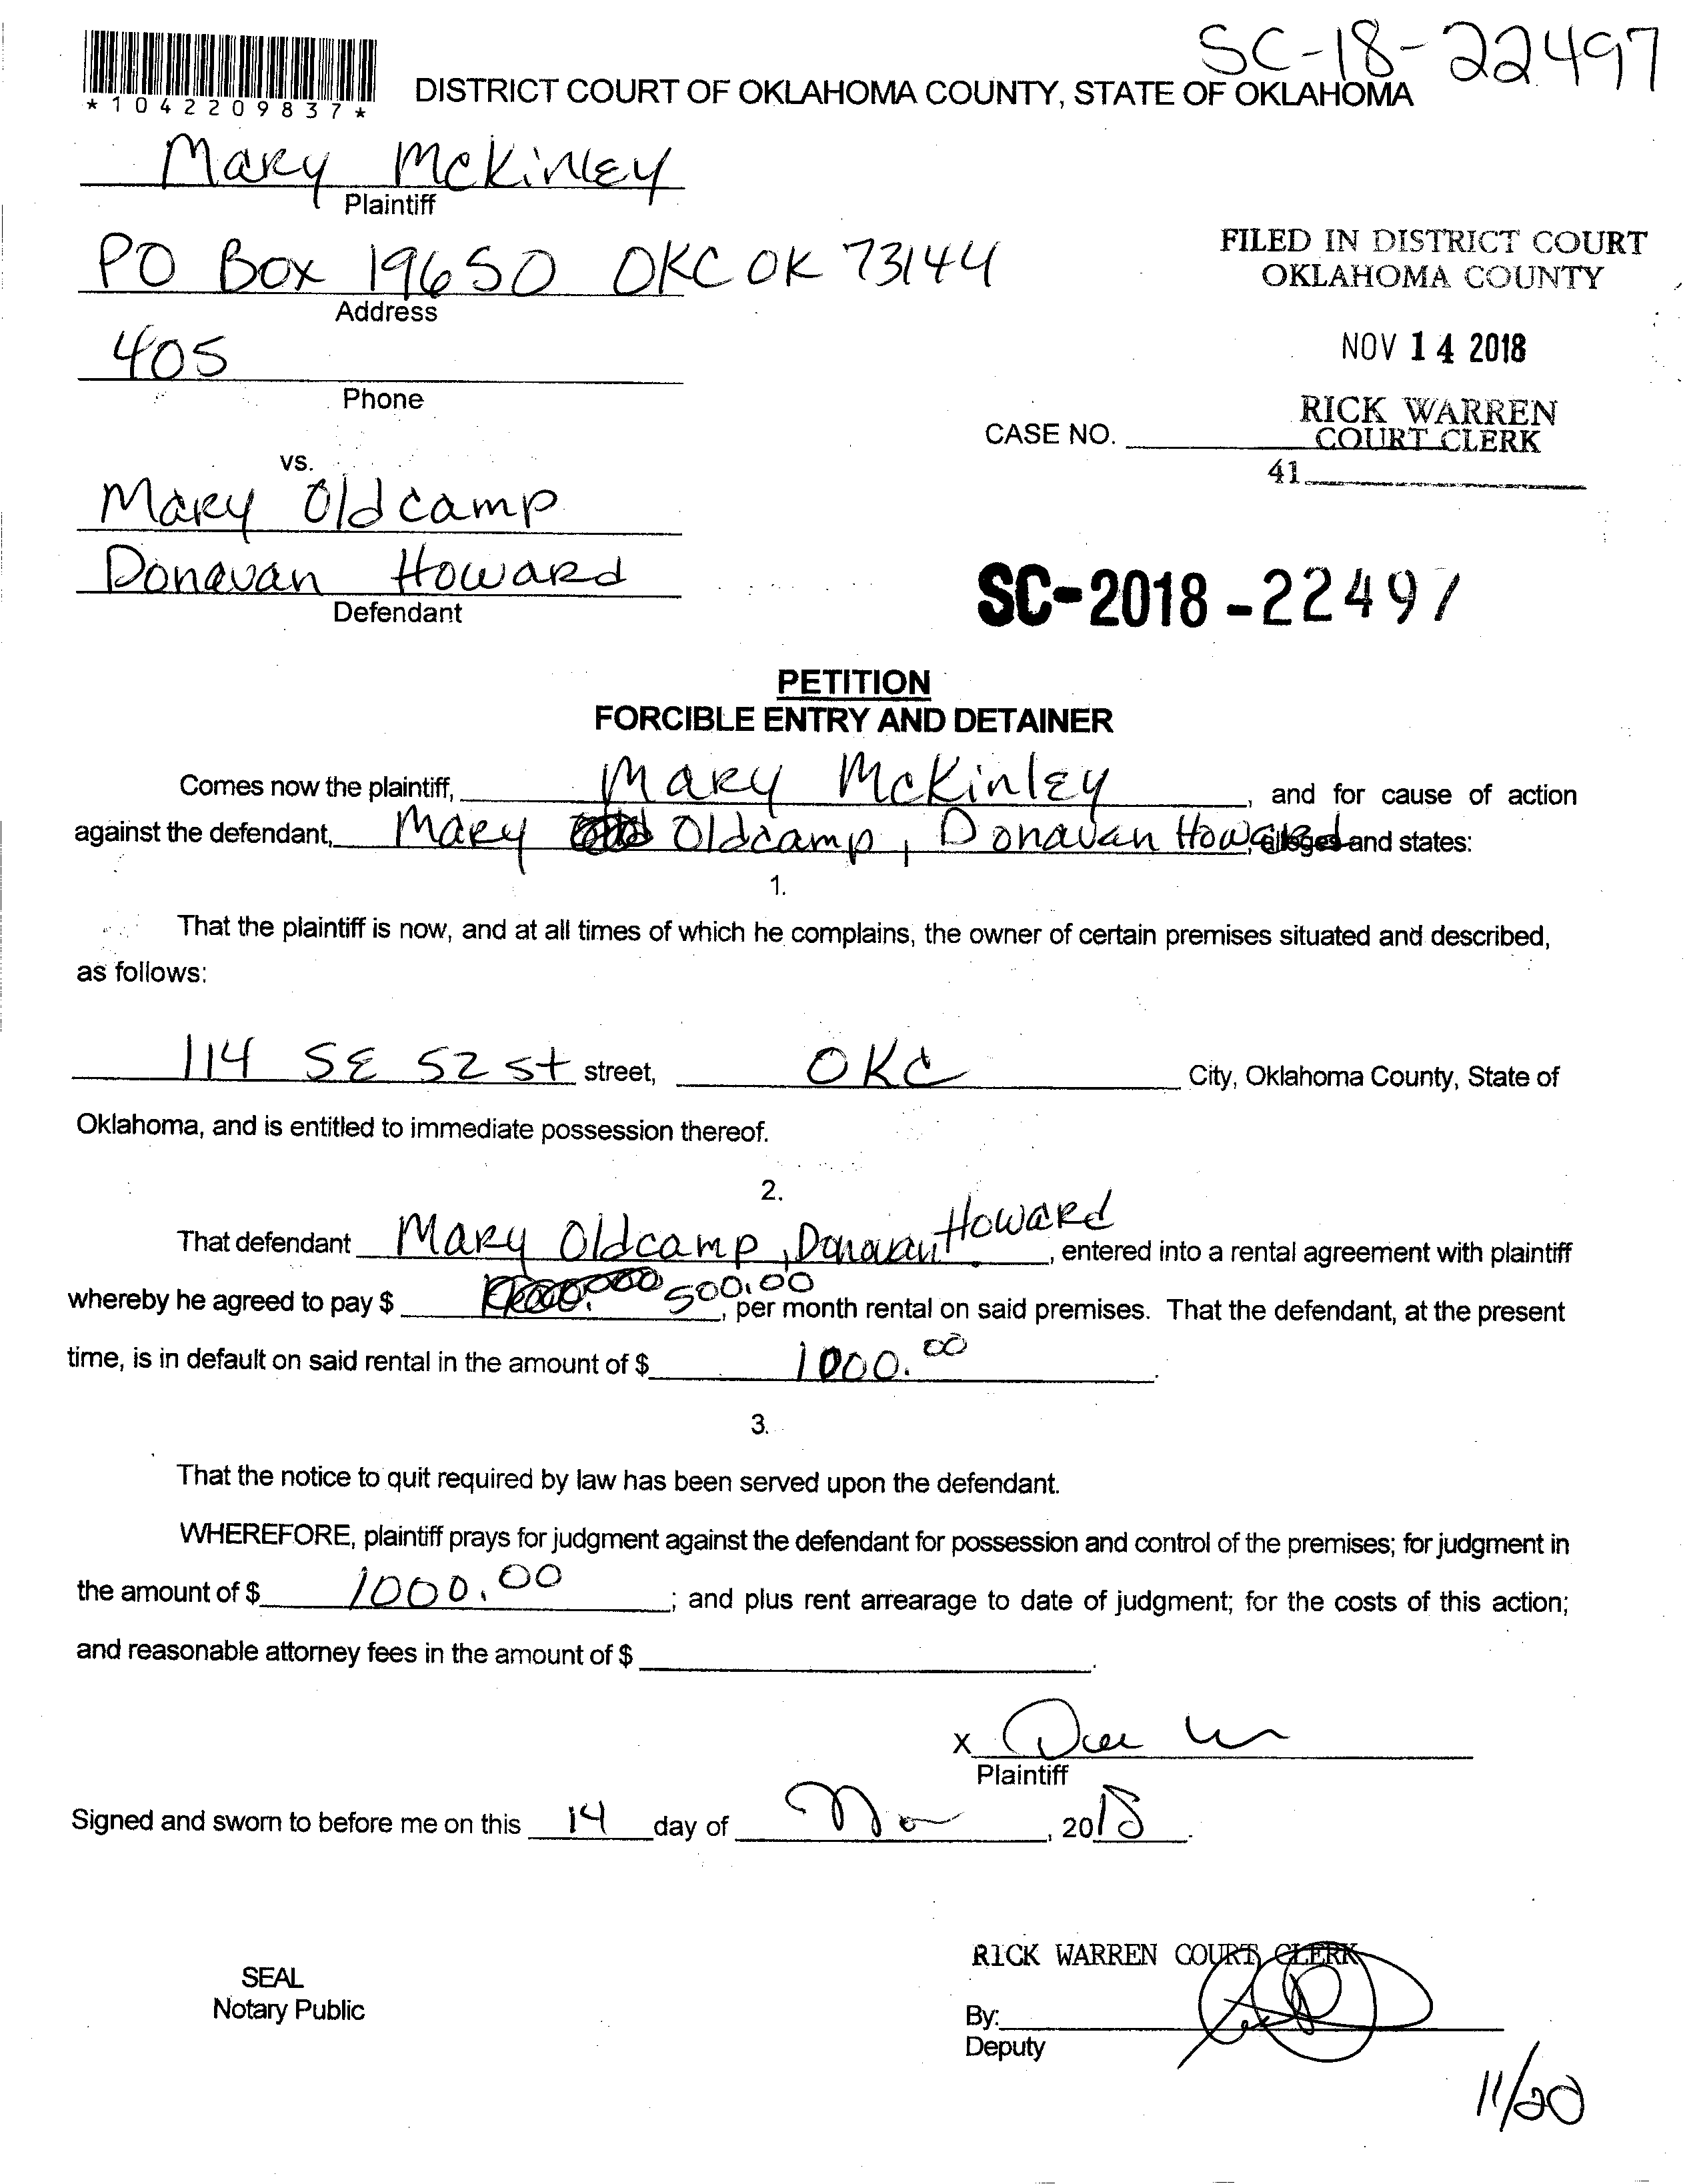 SC-18-22497
*1042209837*
DISTRICT COURT OF OKLAHOMA COUNTY, STATE OF OKLAHOMA
Mary McKinley
Plaintiff
PO Box 19650 OKC OK 73144
Address
FILED IN DISTRICT COURT
OKLAHOMA COUNTY
405
Phone
NOV 14 2018
RICK WARREN
COURT CLERK
CASE NO.
41
vs.
Mary Oldcamp
Donavan Howard
Defendant
SC-2018-22497
PETITION
FORCIBLE ENTRY AND DETAINER
Comes now the plaintiff, Mary McKinley, and for cause of action
against the defendant, Mary Oldcamp, Donavan Howard, alleges and states:
1.
That the plaintiff is now, and at all times of which he complains, the owner of certain premises situated and described,
as follows:
114 SE 52 St street, OKC City, Oklahoma County, State of
Oklahoma, and is entitled to immediate possession thereof.
2.
That defendant Mary Oldcamp, Donavan Howard, entered into a rental agreement with plaintiff
whereby he agreed to pay $ 500.00, per month rental on said premises. That the defendant, at the present
time, is in default on said rental in the amount of $ 1000.00.
3.
That the notice to quit required by law has been served upon the defendant.
WHEREFORE, plaintiff prays for judgment against the defendant for possession and control of the premises; for judgment in
the amount of $ 1000.00; and plus rent arrearage to date of judgment; for the costs of this action;
and reasonable attorney fees in the amount of $ .
X
Plaintiff
Signed and sworn to before me on this 14 day of Nov, 2018.
RICK WARREN COURT CLERK
SEAL
Notary Public
By:
Deputy
11/20